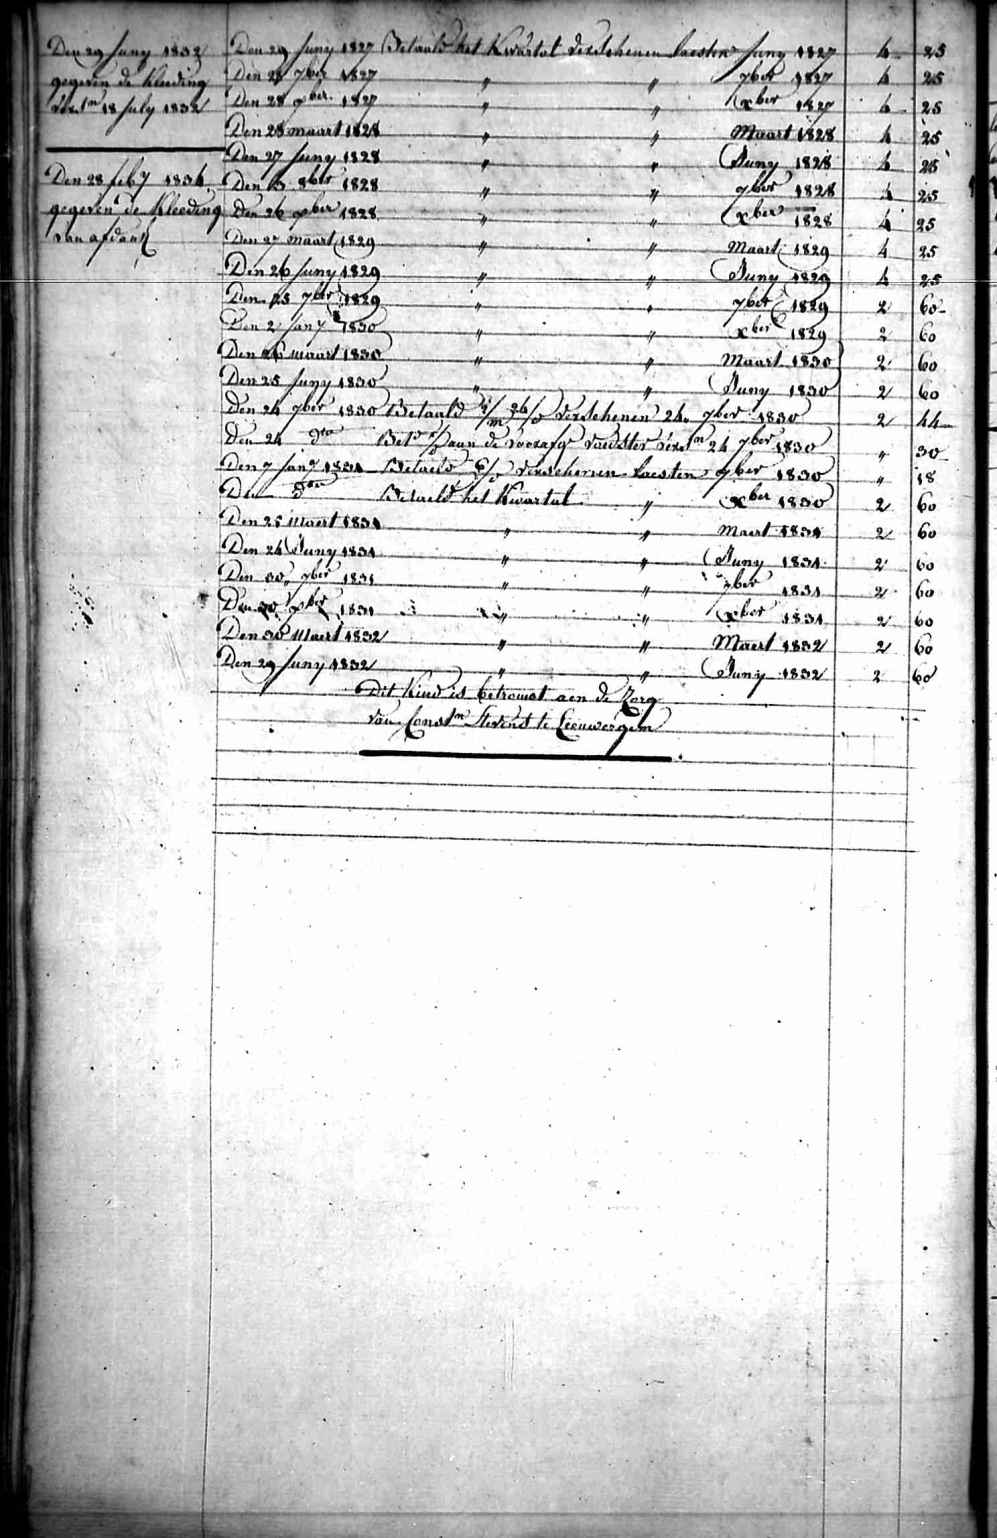 Den 29 Juny 1832
gegeven de kleeding
verst.m 18 July 1832
Den 28 feby 1834
gegeven de kleeding
van afdank
Den 29 Juny 1827 Betaald het Kwartal verschenen laesten Juny 1827 4 25
Den 28 7ber 1827 " " 7ber 1827 4 25
Den 28 xber 1827 " " xber 1827 4 25
Den 28 maart 1828 " " Maart 1828 4 25
Den 27 Juny 1828 " " Juny 1828 4 25
Den 3 8ber 1828 " " 7ber 1828 4 25
Den 26 xber 1828 " " xber 1828 4 25
Den 27 maart 1829 " " Maart 1829 4 25
Den 26 Juny 1829 " " Juny 1829 4 25
Den 25 7ber 1829 " " 7ber 1829 2 60
Den 2 Jany 1830 " " xber 1829 2 60
Den 26 maart 1830 " " Maart 1830 2 60
Den 25 Juny 1830 " " Juny 1830 2 60
Den 24 7ber 1830 Betaald verschenen 24 7ber 1830 2 44
Den 24 dto Bet.d aan de voorafg.e 24 7ber 1830 " 30
Den 7 Jany 1831 Betaeld verschenen laesten 7ber 1830 " 18
Den dto Betaeld het Kwartal " xber 1830 2 60
Den 25 Maert 1831 " " Maert 1831 2 60
Den 24 Juny 1831 " " Juny 1831 2 60
Den 30 7ber 1831 " " 7ber 1831 2 60
Den 30 xber 1831 " " xber 1831 2 60
Den 30 Maert 1832 " " Maert 1832 2 60
Den 29 Juny 1832 " " Juny 1832 2 60
Dit Kind is betrouwt aen de Zorg
van Const.n Stevens te Leeuwergem